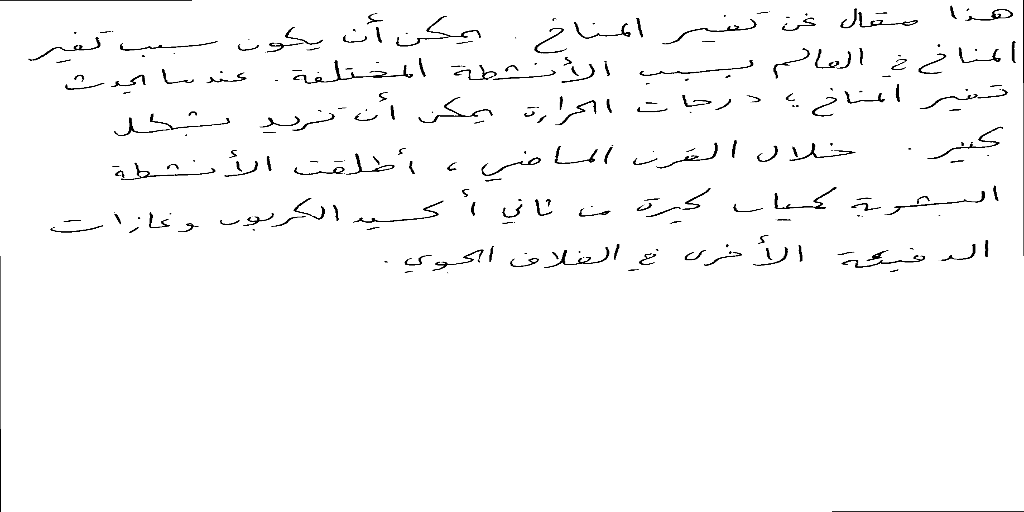 هذا مقال عن تغير المناخ. يمكن أن يكون سبب تغير
المناخ في العالم بسبب الأنشطة المختلفة. عندما يحدث
تغير المناخ ، درجات الحرارة يمكن أن تزيد بشكل
كبير. خلال القرن الماضي ، أطلقت الأنشطة
البشرية كميات كبيرة من ثاني أكسيد الكربون وغازات
الدفيئة الأخرى في الغلاف الجوي.